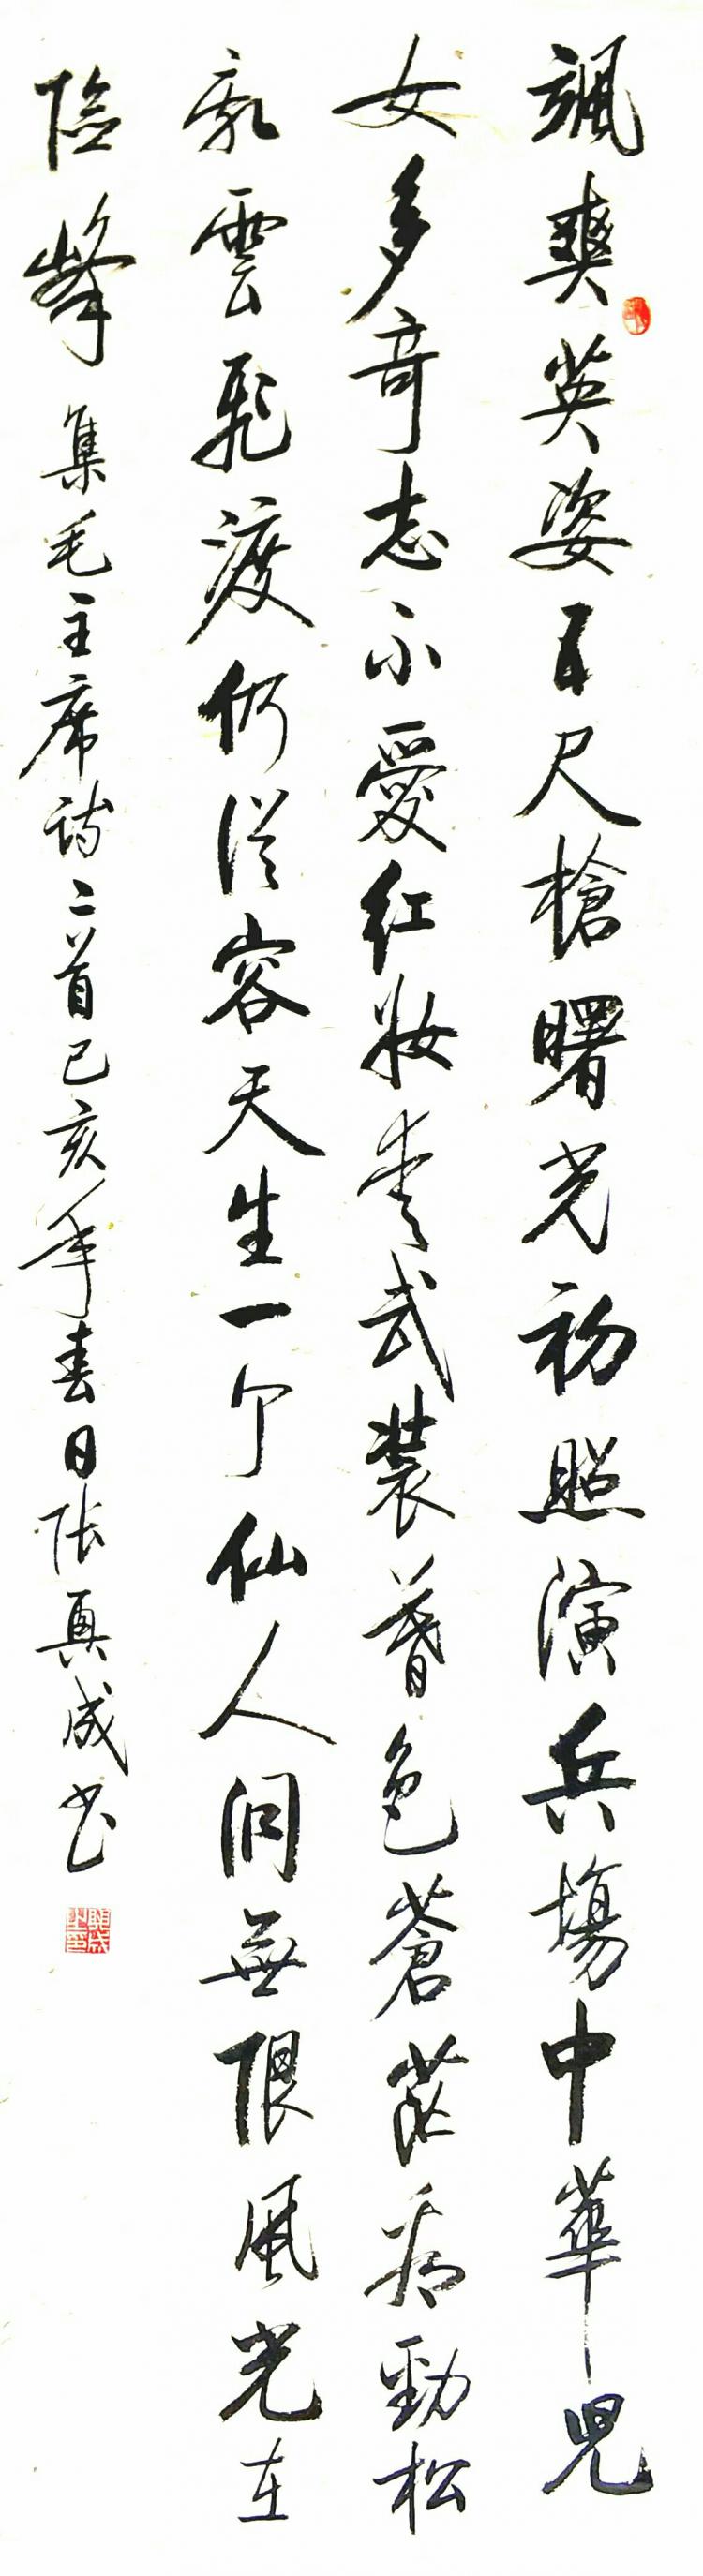 颯爽英姿五尺槍曙光初照演兵場中華兒
女多奇志不愛紅妝愛武裝暮色蒼茫看勁松
亂雲飛渡仍從容天生一个仙人洞無限風光在
險峰 集毛主席詩二首己亥年春日张真成书